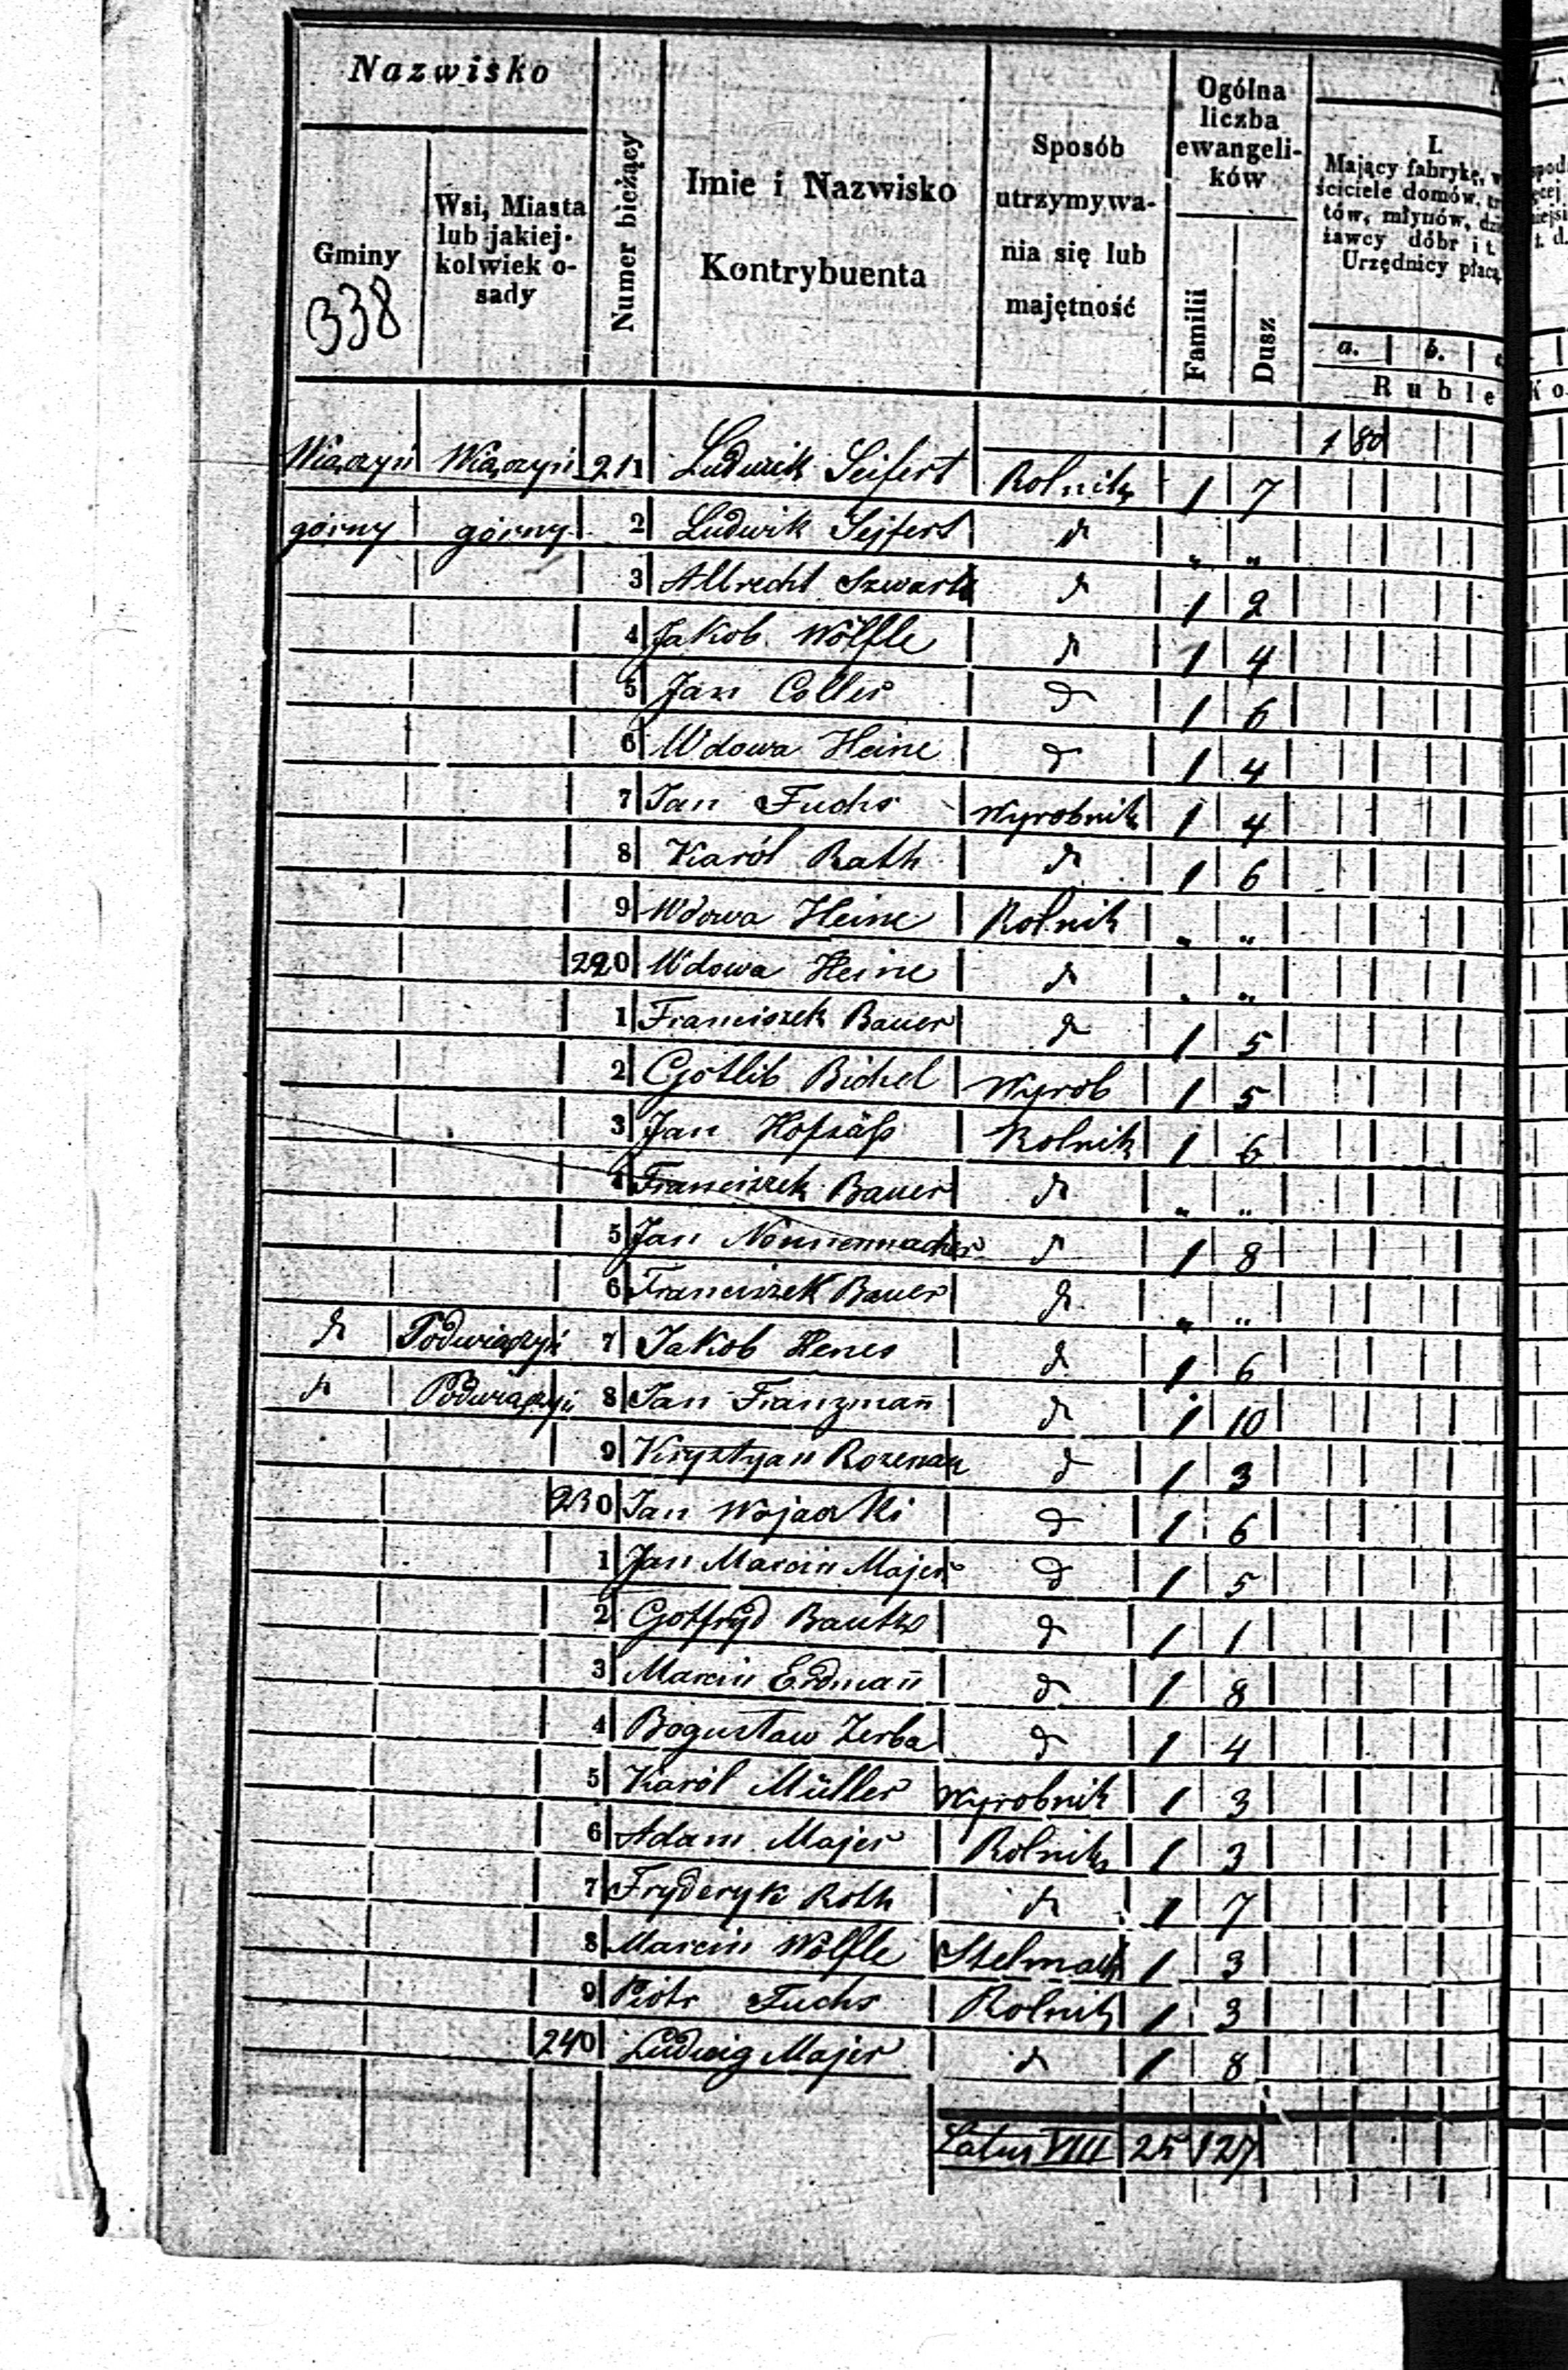 Nazwisko
Gminy
338
Wsi, Miasta
lub jakiej-
kolwiek o-
sady
Numer bieżący
Imie i Nazwisko
Kontrybuenta
Sposób
utrzymywa-
nia się lub
majętność
Ogólna
liczba
ewangeli-
ków
Familii
Dusz
I.
Mający fabrykę, w
ściciele domów,
tów, młynów,
żawcy dóbr i t.
Urzędnicy płacą
a. b.
Ruble
1 80
Wiączyń Wiączyń 211 Ludwik Seifert Rolnik 1 7
górny górny 2 Ludwik Sejfert d " "
3 Albrecht Szwartz d 1 2
4 Jakob Wölfle d 1 4
5 Jan Coller d 1 6
6 Wdowa Heine d 1 4
7 Jan Fuchs Wyrobnik 1 4
8 Karól Rath d 1 6
9 Wdowa Heine Rolnik " "
220 Wdowa Heine d " "
1 Franciszek Bauer d 1 5
2 Gotlib Bichel Wyrob 1 5
3 Jan Hofsäß Rolnik 1 6
4 Franciszek Bauer d " "
5 Jan Nonnenmacher d 1 8
6 Franciszek Bauer d " "
d Podwiączyń 7 Jakob Henes d 1 6
d Podwiączyń 8 Jan Franzman̄ d 1 10
9 Krysztyan Rozenau d 1 3
230 Jan Wojacki d 1 6
1 Jan Marcin Majer d 1 5
2 Gotfryd Bautz d 1 1
3 Marcin Erdman̄ d 1 8
4 Bogusław Zerba d 1 4
5 Karól Müller Wyrobnik 1 3
6 Adam Majer Rolnik 1 3
7 Fryderyk Roth d 1 7
8 Marcin Wölfle Stelmach 1 3
9 Piotr Fuchs Rolnik 1 3
240 Ludwig Majer d 1 8
Latus VIII 25 127